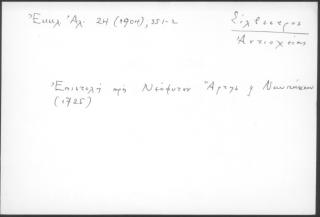 Ἐκκλ. Ἀλ. 24 (1904), 351-2
Σίλβεστρος
Ἀντιοχείας
Ἐπιστολὴ πρὸς Νεόφυτον Ἄρτης & Ναυπάκτου
(1725)